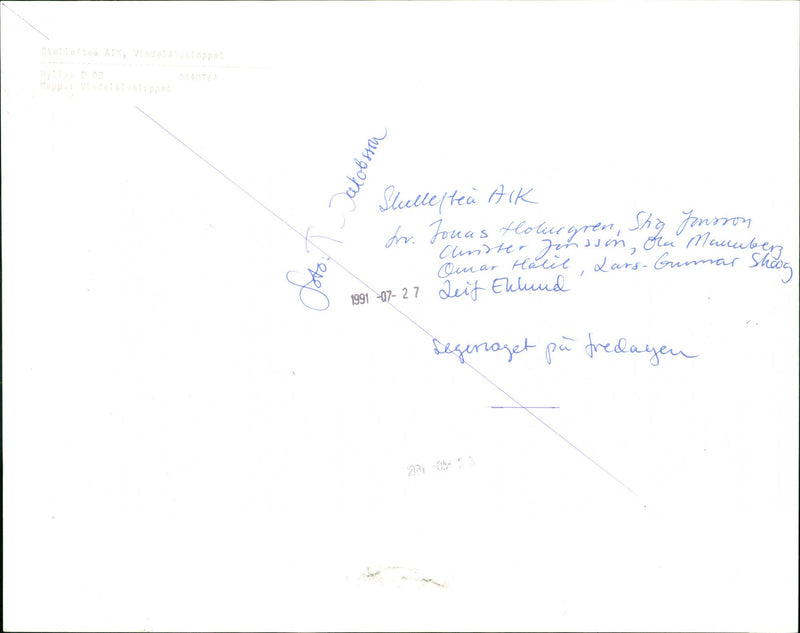 Skellefteå AIK, Vindelälvsloppet
Hylla: D 03
Mapp: Vindelälvsloppet
Foto: T Jakobsson
Skellefteå AIK
fr. Jonas Holmgren, Stig Jonsson
Christer Jonsson, Ola Mannberg
Omar Halil, Lars-Gunnar Skoog
Leif Eklund
1991 -07- 27
Segerlaget på fredagen